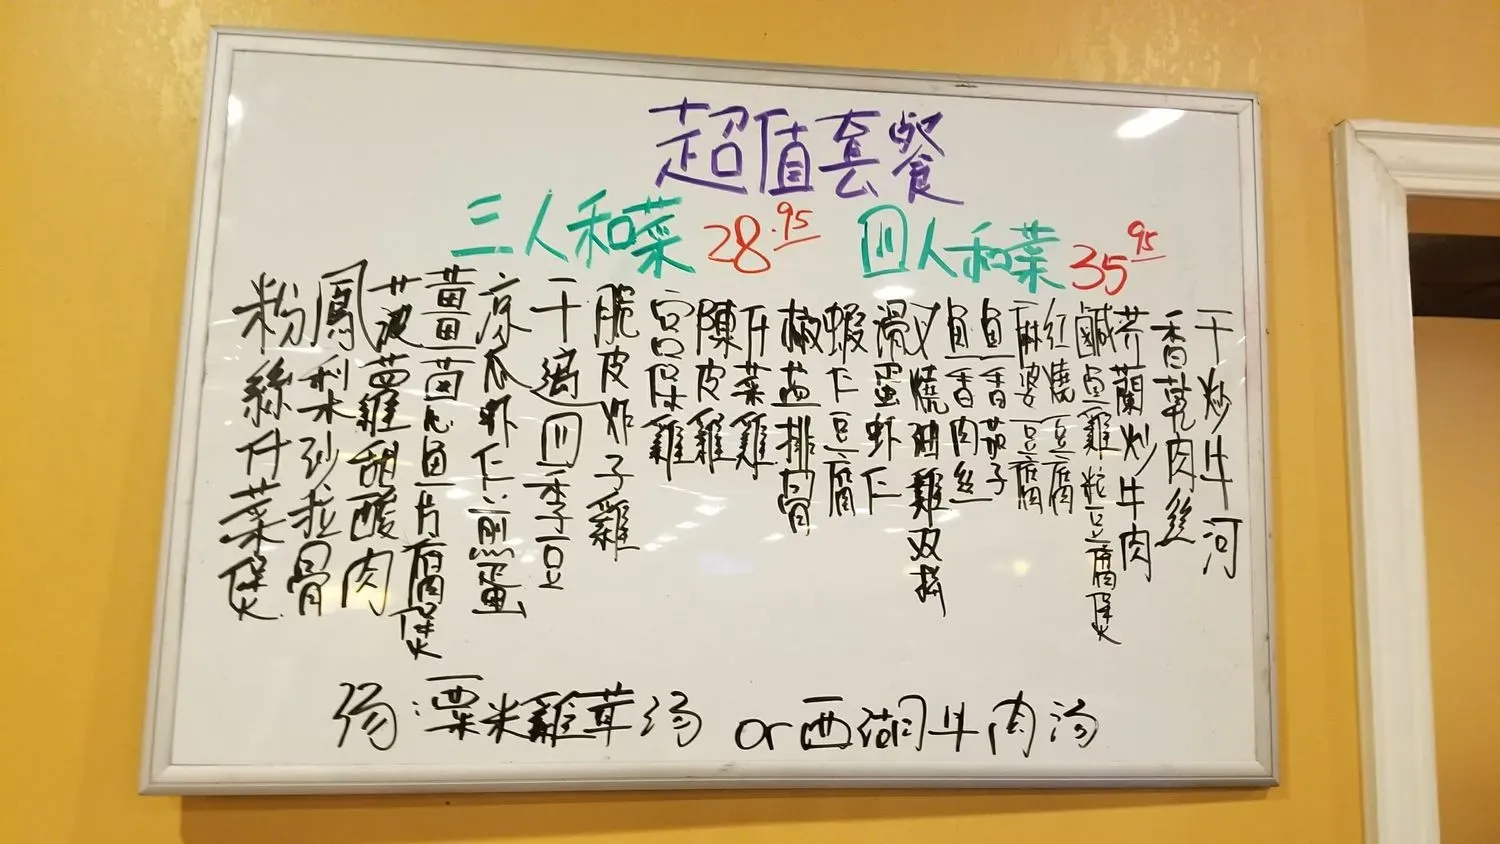 超值套餐
三人和菜 28.95 四人和菜 35.95
干炒牛河
香乾肉丝
芥蘭炒牛肉
鹹鱼雞粒豆腐煲
红燒豆腐
麻婆豆腐
鱼香茄子
鱼香肉丝
叉燒油雞双拼
滑蛋虾仁
蝦仁豆腐
椒盐排骨
什菜雞
陳皮雞
宫保雞
脆皮炸子雞
干煸四季豆
凉瓜虾仁煎蛋
薑葱鱼片腐煲
菠蘿甜酸肉
鳳梨砂拉骨
粉絲什菜煲
汤:粟米雞茸汤 or 西湖牛肉汤